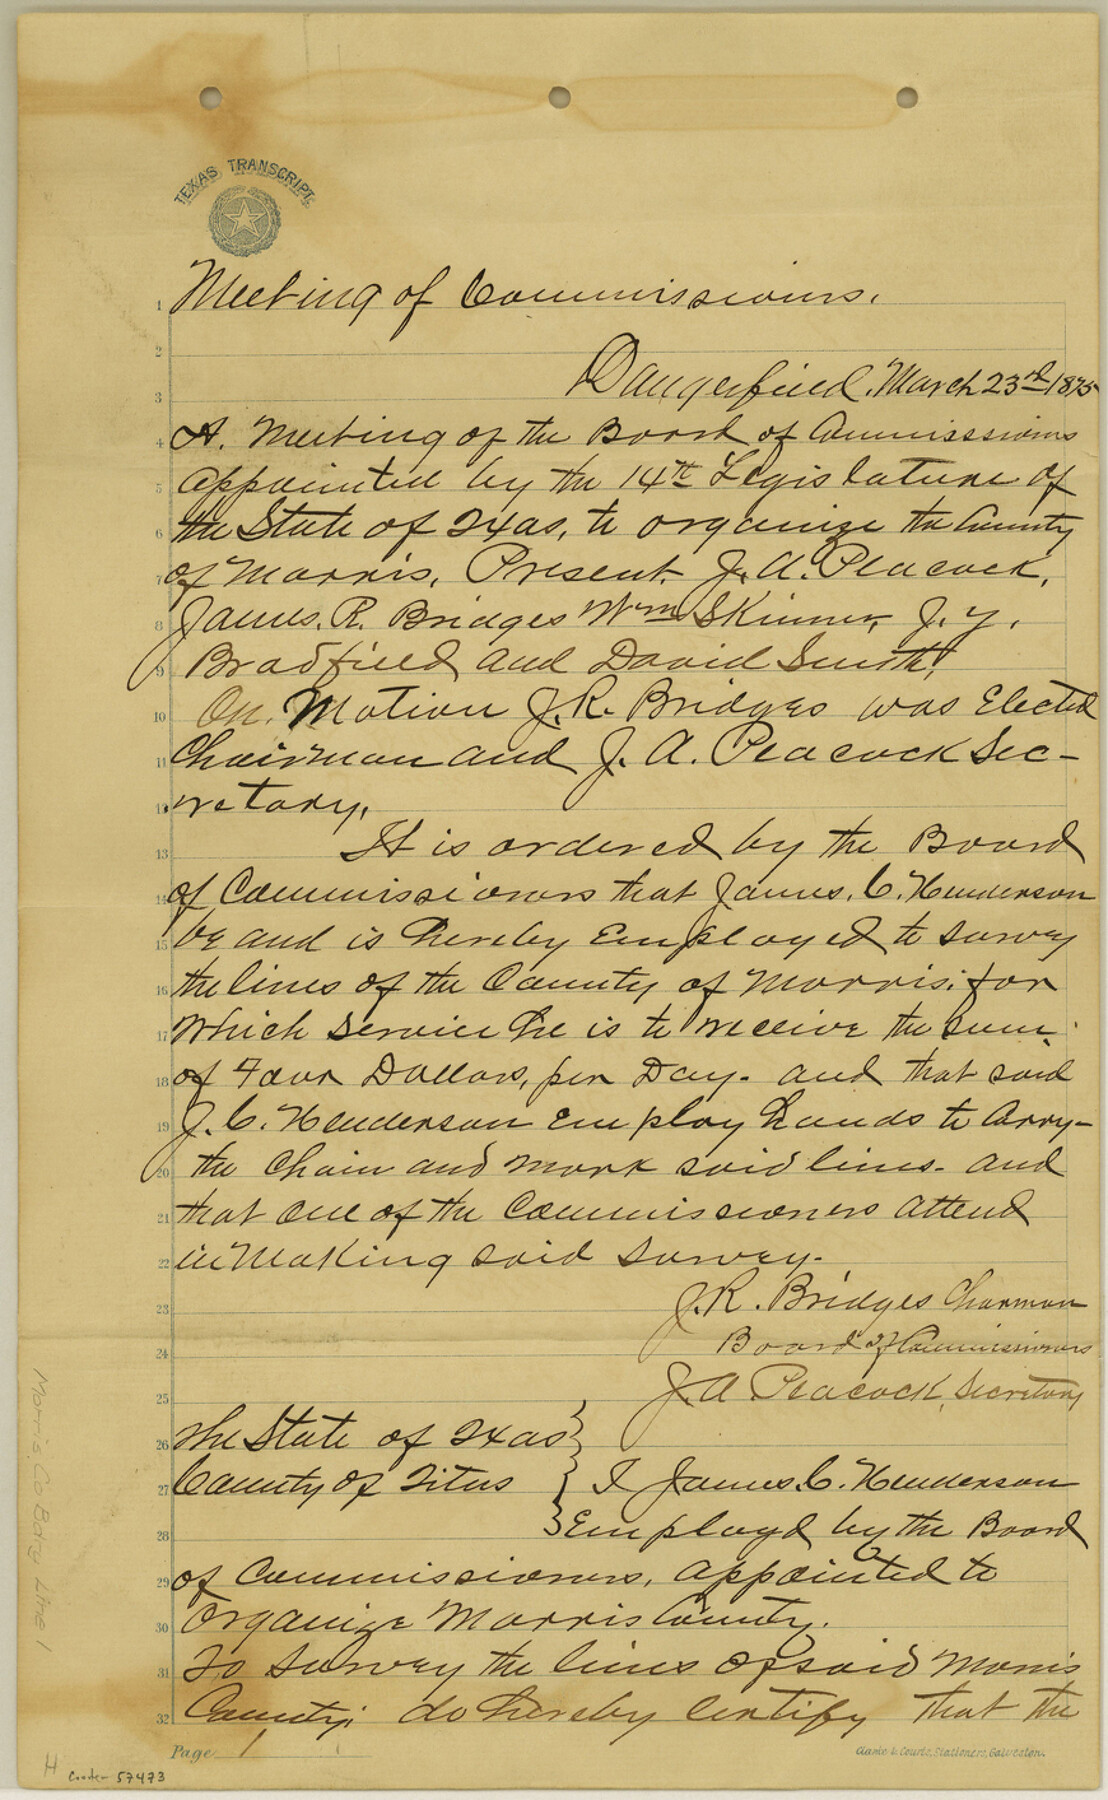 TEXAS TRANSCRIPT.
Meeting of Commissioners.
Daingerfield, March 23rd 1875
A. Meeting of the Board of Commissioners
appointed by the 14th Legislature of
the State of Texas, to organize the County
of Morris, Present. J. A. Peacock,
James. R. Bridges Wm Skinner, J. Y.
Bradfield and David Smith,
On. Motion J. R. Bridges was Elected
Chairman and J. A. Peacock Sec-
retary,
It is ordered by the Board
of Commissioners that James. C. Henderson
be and is hereby Employed to survey
the lines of the County of Morris; for
which service he is to receive the sum
of Four Dollars, per Day- and that said
J. C. Henderson employ hands to Carry-
the Chain and mark said lines- and
that one of the Commissioners attend
in Making said survey-
J. R. Bridges Charman
Board of Commissioners
J. A Peacock, Secretary
The State of Texas
County of Titus } I James. C. Henderson
Employd by the Board
of Commissioners, appointed to
Organize Morris County.
To survey the lines of said Morris
County; do hereby certify that the
Page 1
Clarke & Courts, Stationers, Galveston.
Morris Co Bdry Line 1
H
Counter 57473
1
2
3
4
5
6
7
8
9
10
11
12
13
14
15
16
17
18
19
20
21
22
23
24
25
26
27
28
29
30
31
32